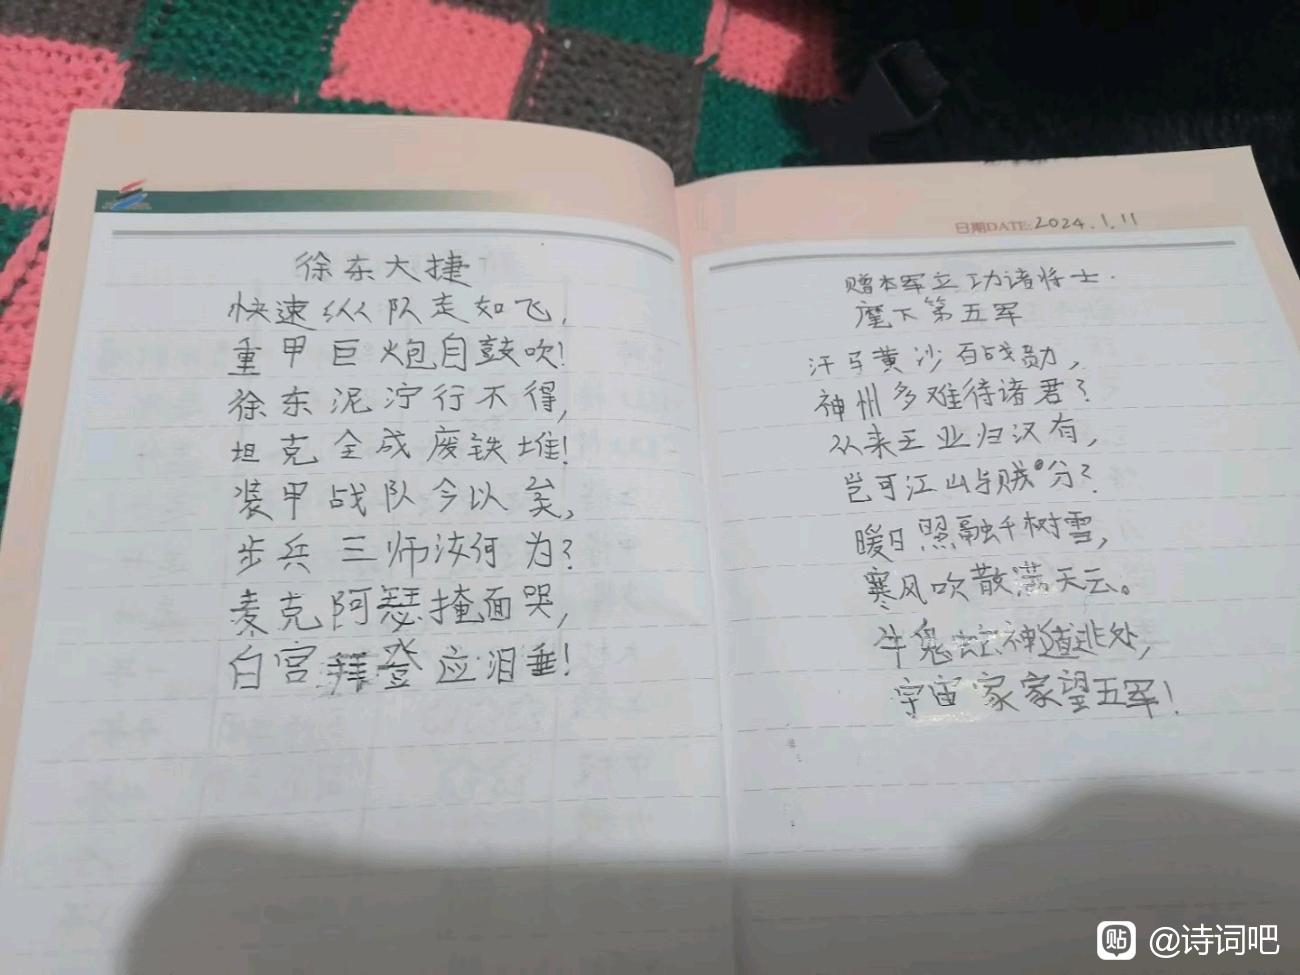 徐东大捷
快速纵队走如飞,
重甲巨炮自鼓吹!
徐东泥泞行不得,
坦克全成废铁堆!
装甲战队今以矣,
步兵三师汝何为?
麦克阿瑟掩面哭,
白宫拜登应泪垂!
日期DATE:2024.1.11
赠本军立功诸将士.
麾下第五军
汗马黄沙百战勋,
神州多难待诸君?
从来王业归汉有,
岂可江山与贼分?
暖日照融千树雪,
寒风吹散满天云。
牛鬼蛇神逃处,
宇宙家家望五军!
贴 @诗词吧